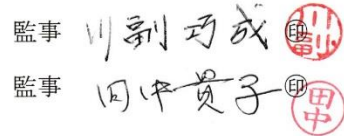 監事 川副巧成 印
監事 田中貴子 印 田中